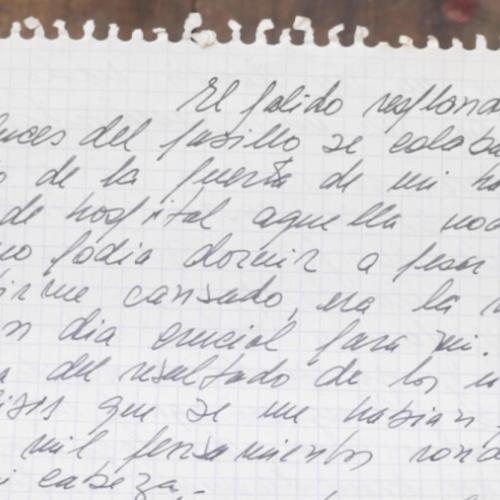 El palido resplando
luces del pasillo se colaba
o de la puerta de mi ha
de hospital aquella noc
no podia dormir a pesar
tirme cansado, era la
un dia crucial para mi.
a del resultado de los
lisis que se me habian
mil pensamientos rond
mi cabeza.